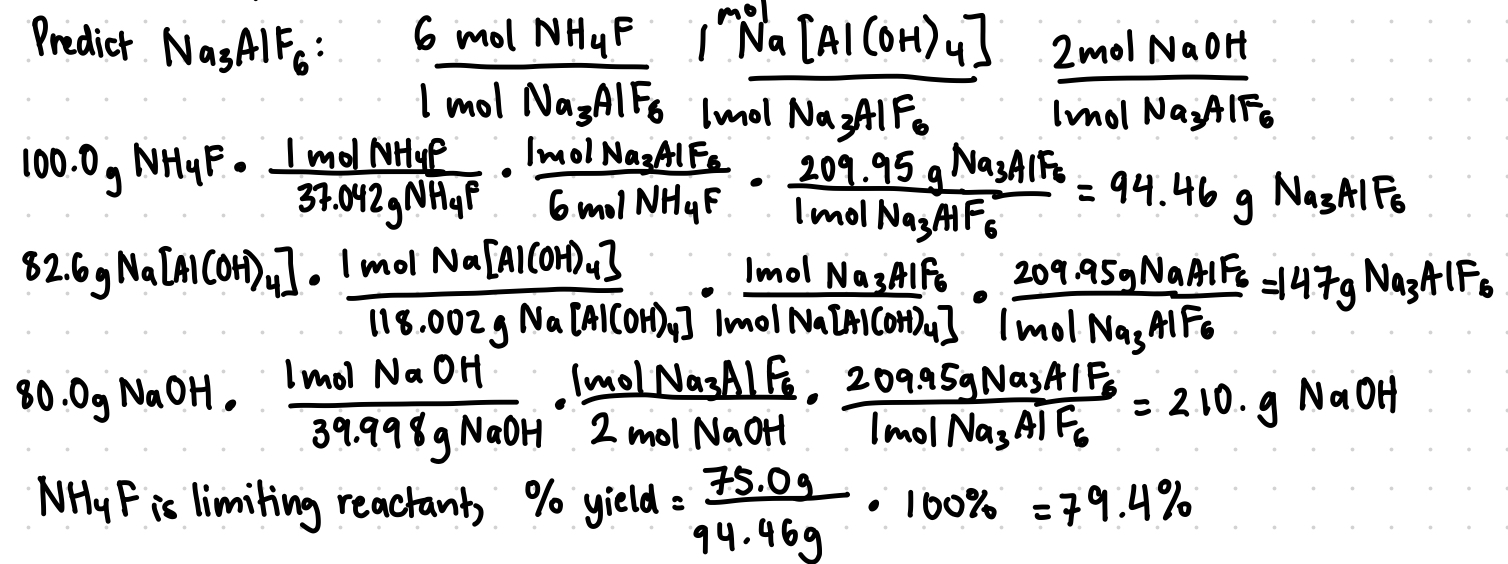 Predict Na₃AlF₆: 6 mol NH₄F / 1 mol Na₃AlF₆ 1 mol Na[Al(OH)₄] / 1mol Na₃AlF₆ 2mol NaOH / 1mol Na₃AlF₆
100.0g NH₄F · 1 mol NH₄F / 37.042g NH₄F · 1mol Na₃AlF₆ / 6 mol NH₄F · 209.95 g Na₃AlF₆ / 1mol Na₃AlF₆ = 94.46 g Na₃AlF₆
82.6g Na[Al(OH)₄] · 1 mol Na[Al(OH)₄] / 118.002 g Na[Al(OH)₄] · 1mol Na₃AlF₆ / 1mol Na[Al(OH)₄] · 209.95g NaAlF₆ / 1 mol Na₃AlF₆ = 147g Na₃AlF₆
80.0g NaOH · 1 mol NaOH / 39.998g NaOH · 1mol Na₃AlF₆ / 2 mol NaOH · 209.95g Na₃AlF₆ / 1mol Na₃AlF₆ = 210. g NaOH
NH₄F is limiting reactant, % yield = 75.0g / 94.46g · 100% = 79.4%